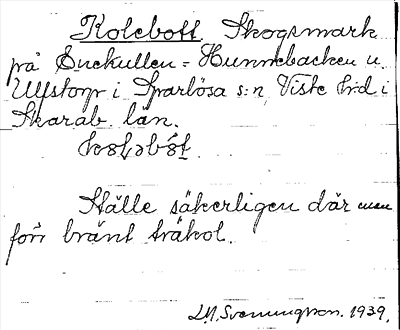 Kolebott Skogsmark
på Snekullen = Hunnebacken u.
Ulvstorp i Sparlösa s:n, Viste hrd i
Skarab. län.

Ställe säkerligen där man
förr bränt träkol.
1939.